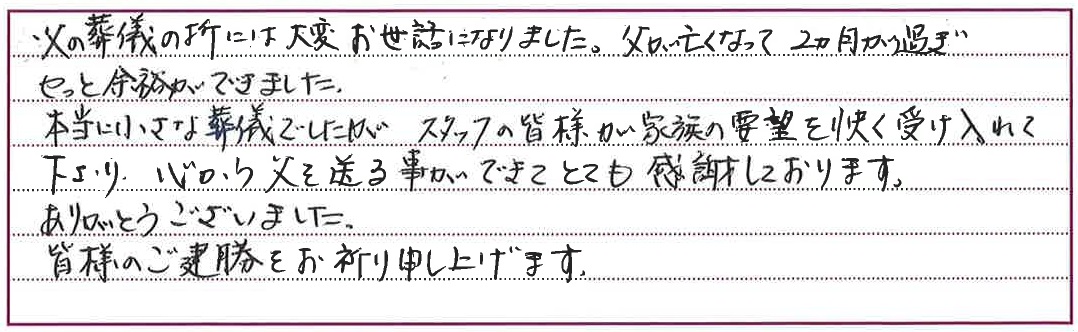 ・父の葬儀の折には大変お世話になりました。父が亡くなって2ヵ月が過ぎ
やっと余裕ができました。
本当に小さな葬儀でしたが スタッフの皆様が家族の要望を快く受け入れて
下さり、心から父を送る事ができてとても感謝しております。
ありがとうございました。
皆様のご建勝をお祈り申し上げます。